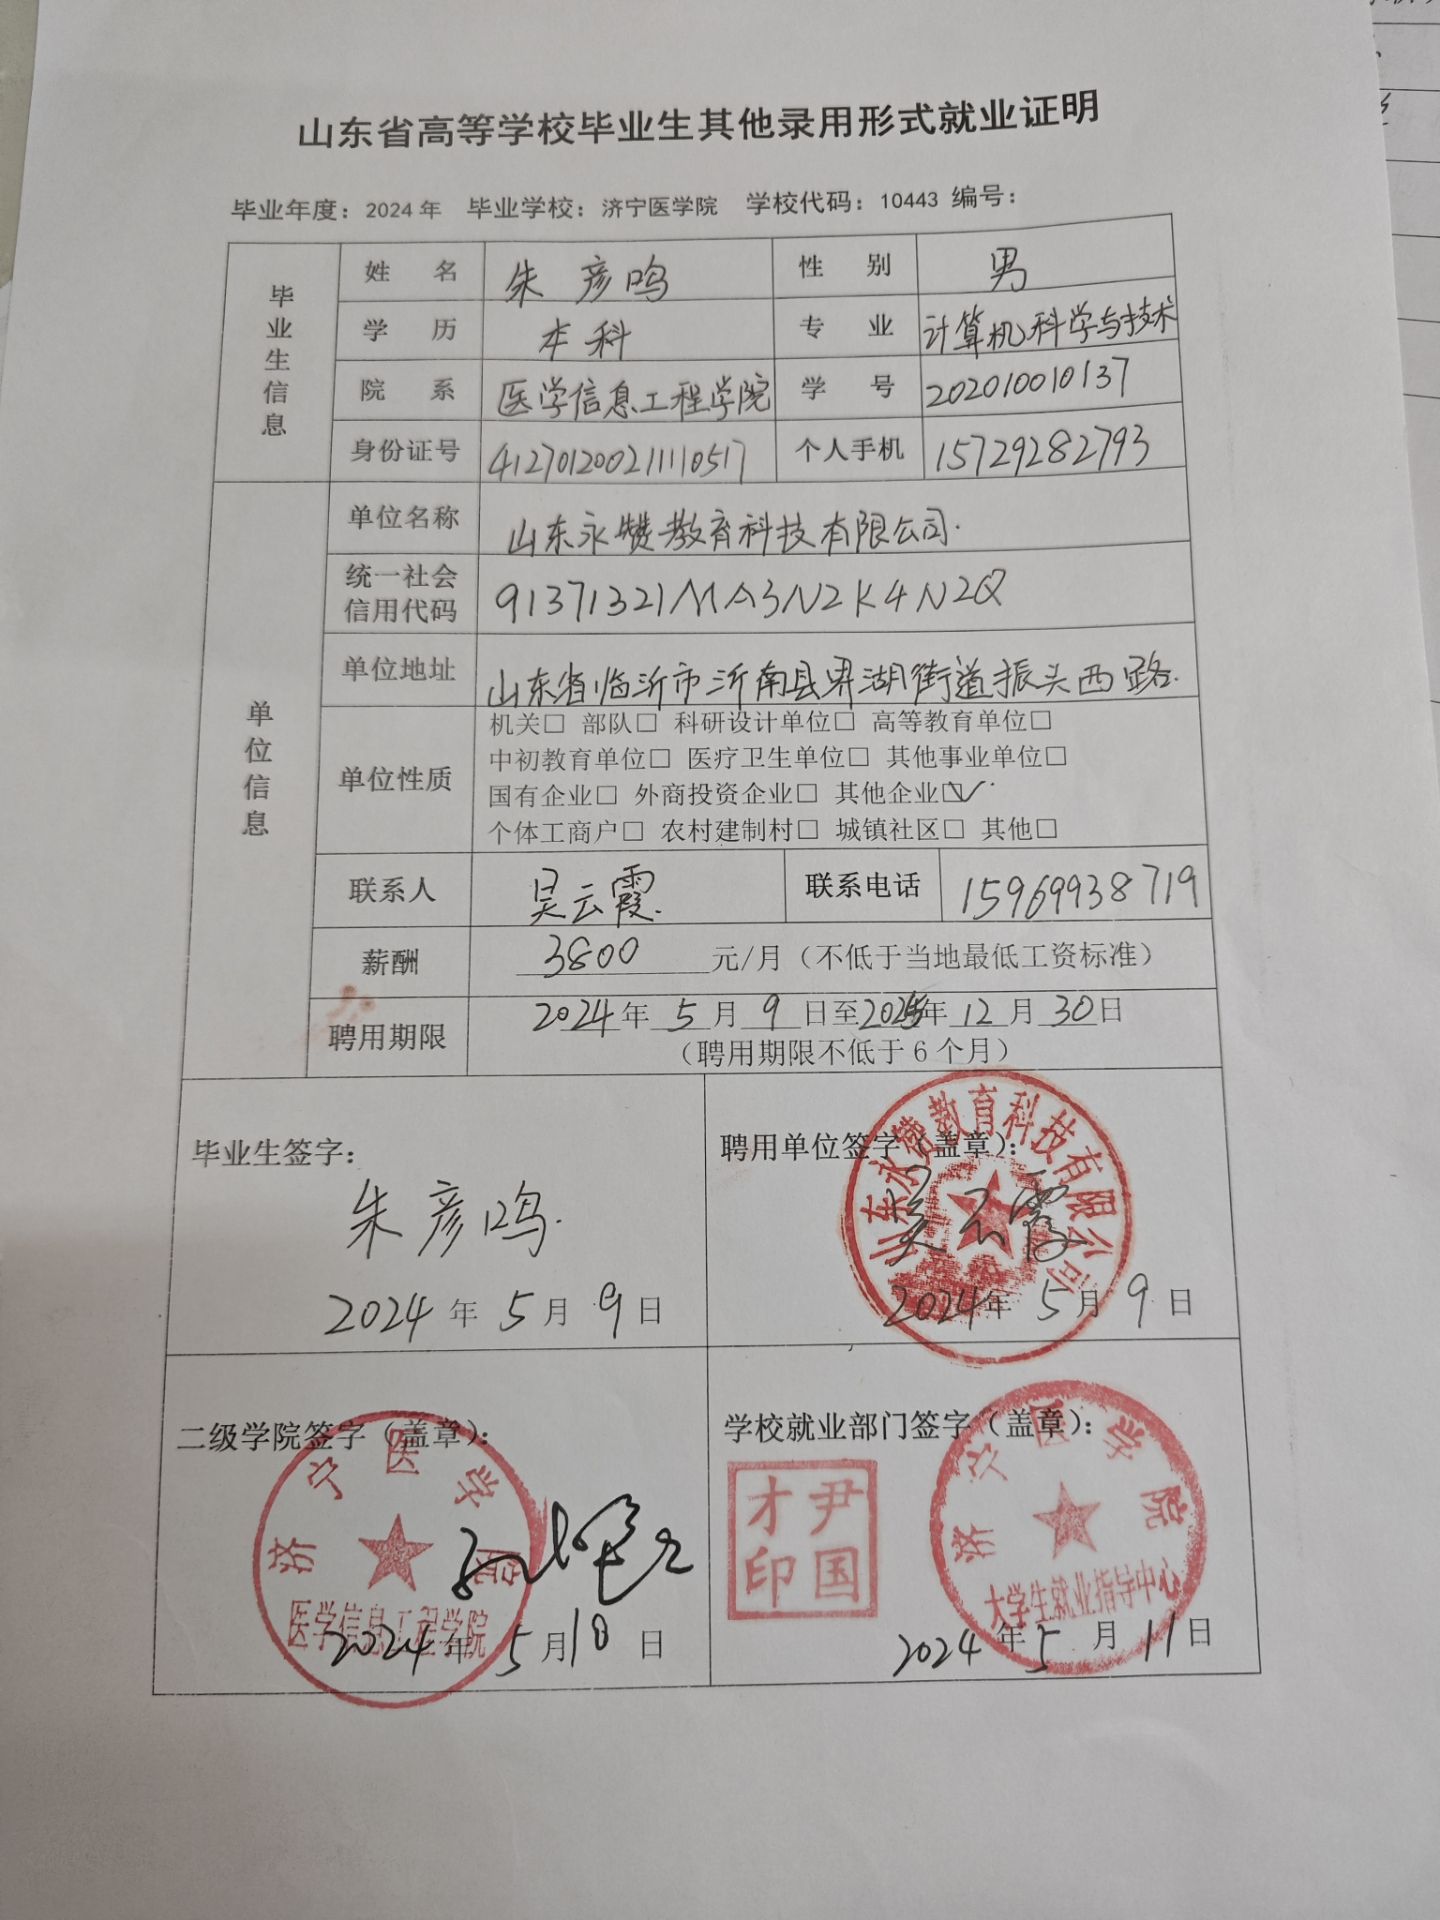 山东省高等学校毕业生其他录用形式就业证明
毕业年度：2024 年 毕业学校：济宁医学院 学校代码：10443 编号：
毕业生信息
姓 名 朱彦鸣 性 别 男
学 历 本科 专 业 计算机科学与技术
院 系 医学信息工程学院 学 号 202010010137
身份证号 412701200211110517 个人手机 15729282793
单位信息
单位名称 山东永赞教育科技有限公司.
统一社会信用代码 91371321MA3N2K4N2Q
单位地址 山东省临沂市沂南县界湖街道振头西路.
单位性质
机关□ 部队□ 科研设计单位□ 高等教育单位□
中初教育单位□ 医疗卫生单位□ 其他事业单位□
国有企业□ 外商投资企业□ 其他企业☑
个体工商户□ 农村建制村□ 城镇社区□ 其他□
联系人 吴云霞. 联系电话 15969938719
薪酬 3800 元/月（不低于当地最低工资标准）
聘用期限 2024年 5 月 9 日至 年 12 月 30 日
（聘用期限不低于 6 个月）
毕业生签字：
朱彦鸣.
2024 年 5 月 9 日
聘用单位签字（盖章）：
山东永赞教育科技有限公司
吴云霞
2024 年 5 月 9 日
二级学院签字（盖章）：
济宁医学院
医学信息工程学院
2024 年 5 月 10 日
学校就业部门签字（盖章）：
尹国才印
济宁医学院
大学生就业指导中心
2024 年 5 月 11 日